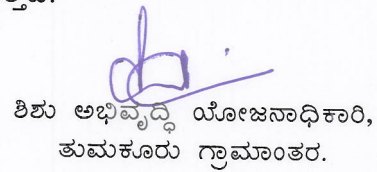 ಶಿಶು ಅಭಿವೃದ್ಧಿ ಯೋಜನಾಧಿಕಾರಿ,
ತುಮಕೂರು ಗ್ರಾಮಾಂತರ.